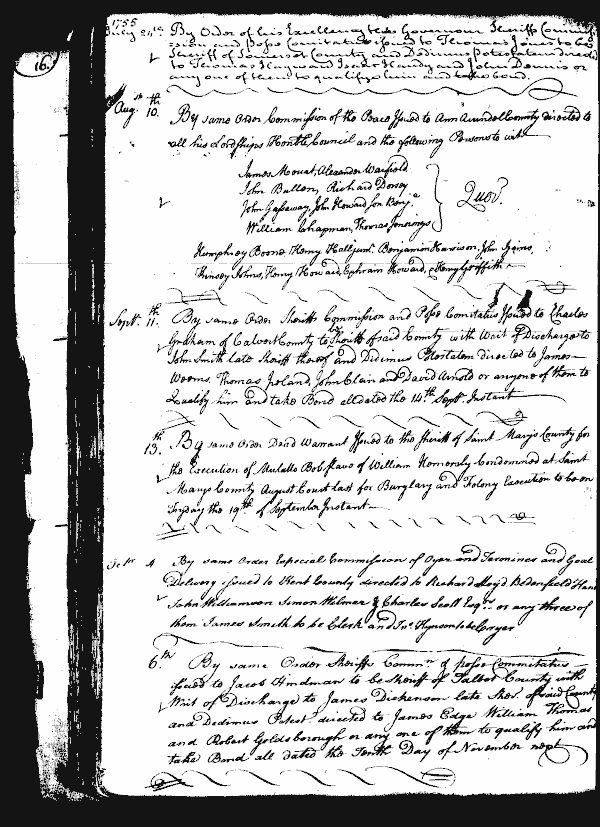 1755
16.
July 24th By Order of his Excellency the Governour Sheriff Commis
sion and Posse Comitatus issued to Thomas Jones to be
Sheriff of Somerset County and Dedimus Potestatem directed
to Thomas Hayward Isaac Handy and John Dennis or
any one of them to qualify him and take bond.
Augst. 10.th By same Order Commission of the Peace Issued to Ann Arundel County directed to
all his Lordships Honble. Council and the following Persons to wit
James Mouat, Alexander Warfield
John Bullen, Richard Dorsey
John Gassaway, John Howard son Benja.
William Chapman, Thomas Jennings
Quor.
Humphrey Boone, Henry Hall junr. Benjamin Harrison, John Ijams,
Kinsey Johns, Henry Howard, Ephraim Howard, & Henry Griffith
Septr. 11.th By same Order Sheriffs Commission and Posse Comitatus Issued to Charles
Graham of Calvert County to be Sheriff of said County with Writ of Discharge to
John Smith late Sheriff thereof and Didimus Potestatem directed to James
Weems, Thomas Ireland, John Clan and David Arnold or any one of them to
Qualify him and take Bond all dated the 14th. Septr. Instant
13.th By same Order Dead Warrant Issued to the Sheriff of Saint Marys County for
the Execution of Mulatto Bob slave of William Hemersly Condemned at Saint
Marys County August Court last for Burglary and Felony Execution to be on
Fryday the 19th. of September Instant
Octr. 4 By same Order Especial Commission of Oyer and Terminer and Goal
Delivery issued to Kent County directed to Richard Lloyd Bedenfield Hand
John Williamson Simon Wilmer & Charles Scott Esqrs. or any three of
them James Smith to be Clerk and Jno. Hynson to be Cryer
6.th By same Order Sheriffs Commn. & posse Commitatus
issued to Jacob Hindman to be Sheriff of Talbot County with
Writ of Discharge to James Dickenson late Sher. of said County
and Dedimus Potest. directed to James Edge William Thomas
and Robert Goldsborough or any one of them to qualify him and
take Bond all dated the Tenth Day of November next